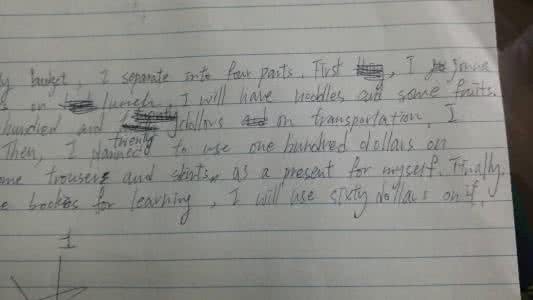 budget, I separate into four parts. First, I
on lunch. I will have noodles and some fruits.
hundred and twenty dollars on transportation. I
Then, I planned to use one hundred dollars on
some trousers and skirts, as a present for myself. Finally,
books for learning, I will use sixty dollars on it.
1